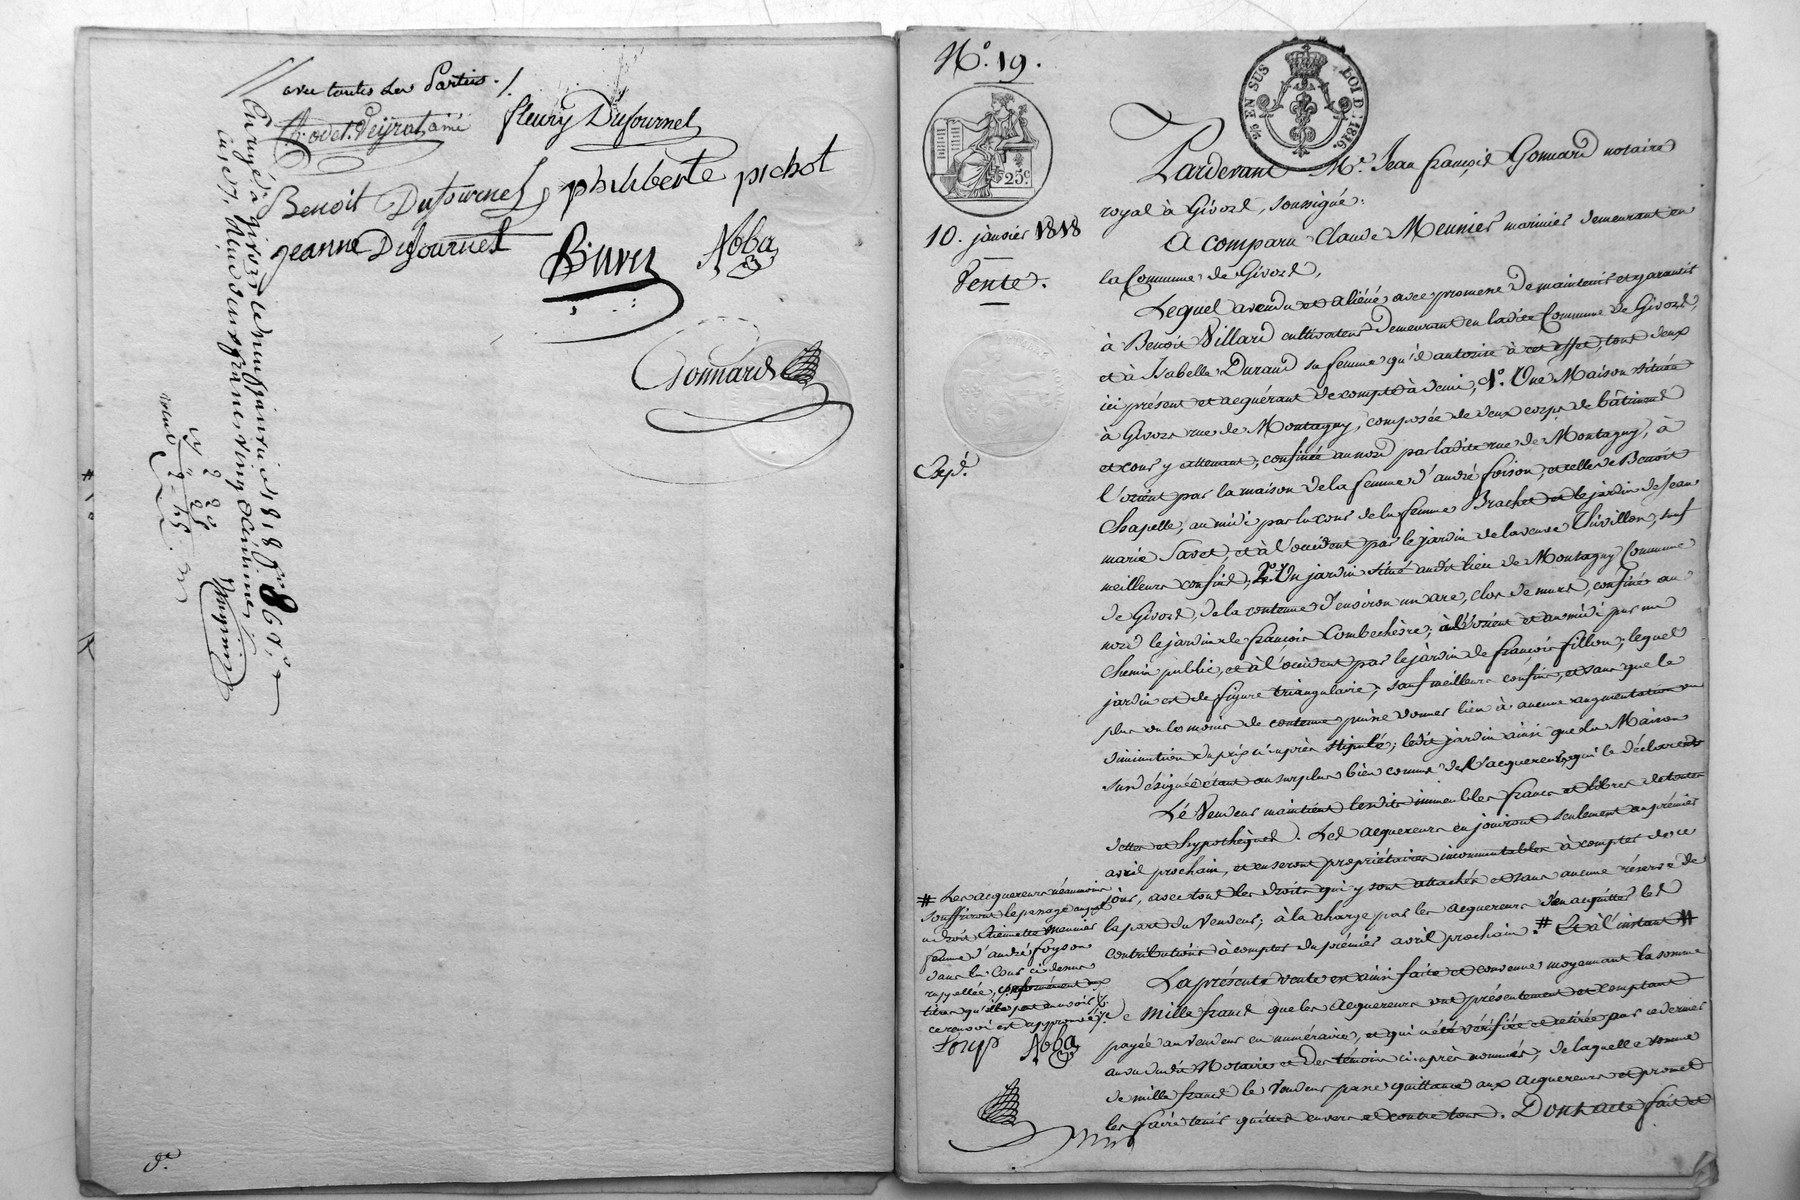 avec toutes les Parties ./.
Odet Peyrot ainé
fleury Dufournel
Benoit Dufournel
philiberte pichot
jeanne Dufournel
Abba
Gonnard
Enregé à Givors le neuf janvier 1818
N.° 19.
25 EN SUS
LOI DE 1816.
25c
10. janvier 1818
Vente.
Expé.
Pardevant Me. Jean françois Gonnard notaire
royal à Givors, soussigné.
A comparu Claude Meunier marinier demeurant en
la Commune de Givors,
Lequel a vendu et aliéné avec promesse de maintenir et garantir
à Benoit Villard cultivateur demeurant en ladite Commune de Givors,
et à Isabelle Durand sa femme qu'il autorise à cet effet, tous deux
ici présent et acquérant de compte à demi, 1°. Une Maison située
à Givors rue de Montagny, composée de deux corps de bâtiment
et cour y attenant, confinée au nord par ladite rue de Montagny, à
l'orient par la maison de la femme d'andré foison, et celle de Benoit
Chapelle, au midi par la cour de la femme Brachet et le jardin de Jean
marie Savet, et à l'occident par le jardin de la veuve Thivillon, sauf
meilleurs confins; 2°. Un jardin situé audit lieu de Montagny Commune
de Givors, de la contenue d'environ un are, clos de murs, confiné au
nord le jardin de françois Combechère; à l'orient et au midi par un
Chemin public, et à l'occident par le jardin de françois fillion; lequel
jardin est de figure triangulaire; sauf meilleurs confins, et sans que le
plus ou le moins de contenue puisse donner lieu à aucune augmentation ou
diminution du prix ci-après stipulé; ledit jardin ainsi que la Maison
sus désignée étant au surplus bien connus des acquereurs, qui le déclarent
Le Vendeur maintient lesdits immeubles francs et libres de toutes
dettes et hypothèques. Les acquereurs en jouiront seulement au prémier
avril prochain, et en seront propriétaires incommutables à compter de ce
jour, avec tous les droits qui y sont attachés et sans aucune réserve de
la part du Vendeur; à la charge par les acquereurs d'en acquitter les
contributions à compter du prémier avril prochain. # Et à l'instant #
La présente vente est ainsi faite et convenue moyennant la somme
de Mille francs que les acquereurs ont présentement et comptant
payée au vendeur en numéraire, et qui a été vérifiée et retirée par ce dernier
au vu dudit Notaire et des témoins ci-après nommés, de laquelle somme
de mille francs le Vendeur passe quittance aux acquereurs et promet
les faire tenir quittes envers et contre tous. Dont acte fait et
# Les acquereurs néanmoins
souffriront le passage auquel
a droit Etiennette Meunier
femme d'andré foyson
dans la Cour ci-dessus
rappellée, conformément aux
titres qu'elle peut en avoir
ce renvoi est approuvé
Abba